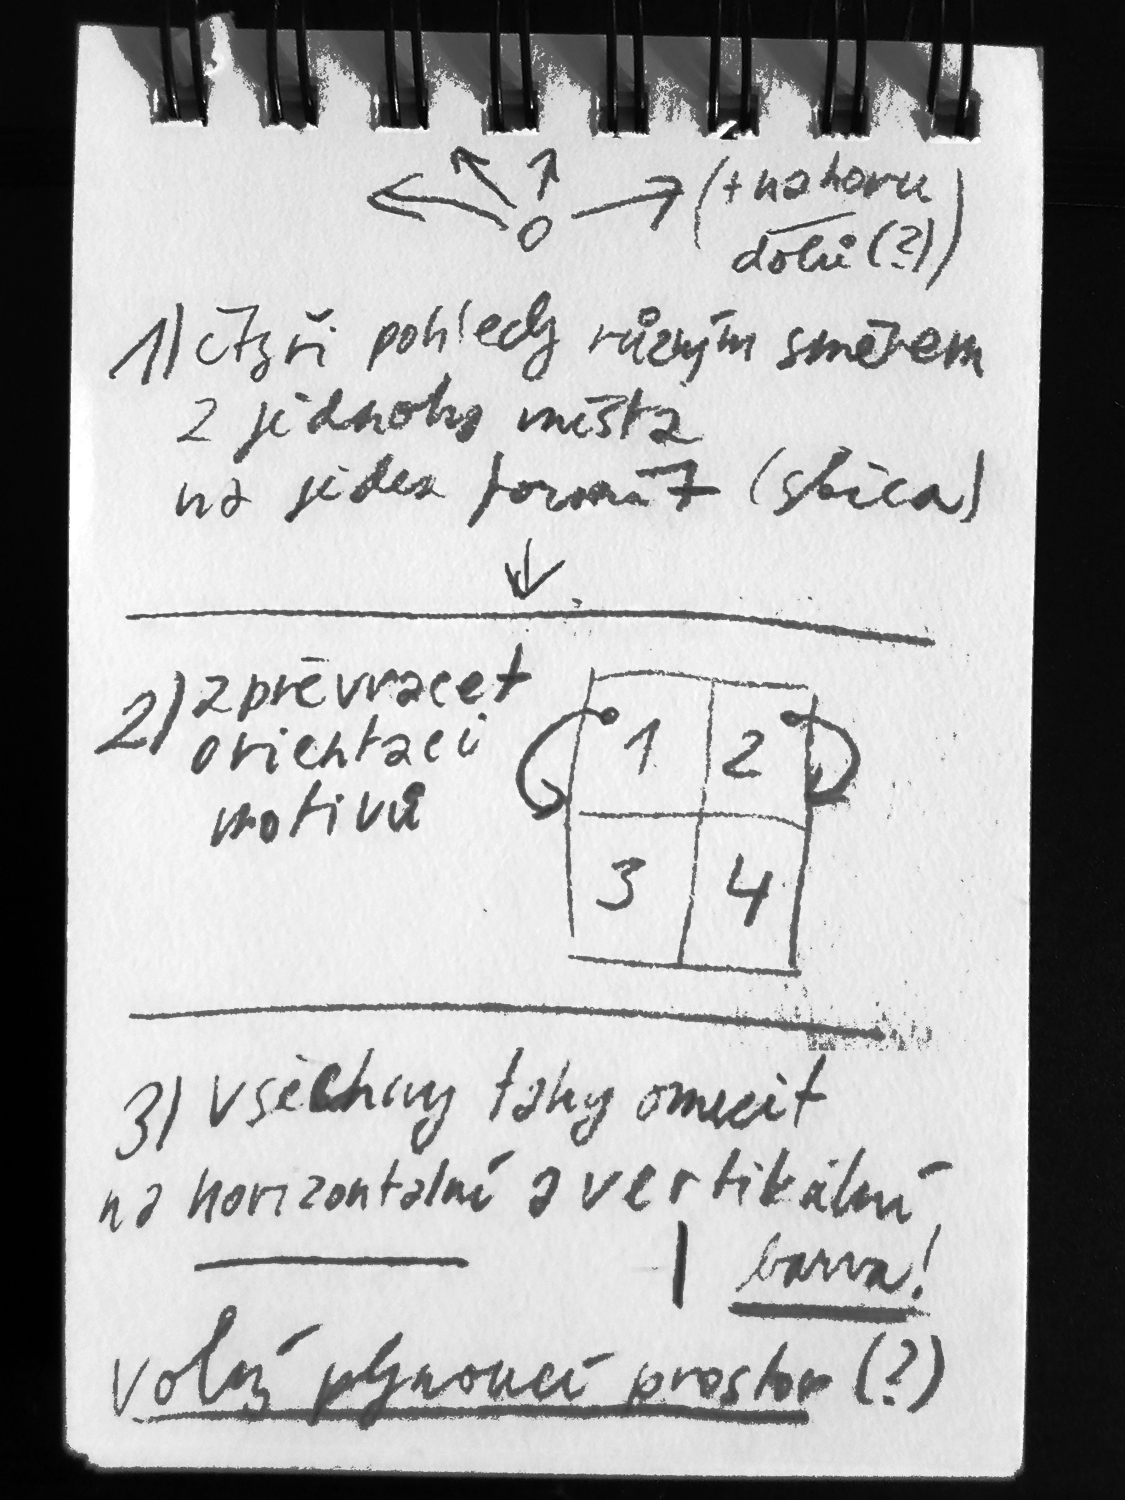 (+ nahoru
dolů (?))
1) čtyři pohledy různým směrem
z jednoho místa
na jeden formát (skica)
2) zpřevracet
orientaci
motivů
1 2
3 4
3) všechny tahy omezit
na horizontální a vertikální
barva!
volný plynoucí prostor (?)